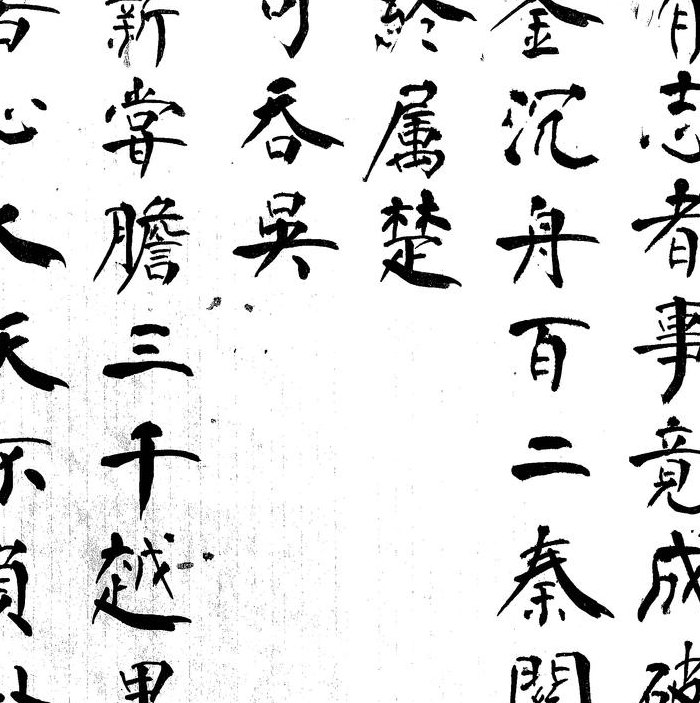 有志者事竟成破
釜沉舟百二秦關
終属楚
可吞吳
薪嘗膽三千越甲
苦心人天不負